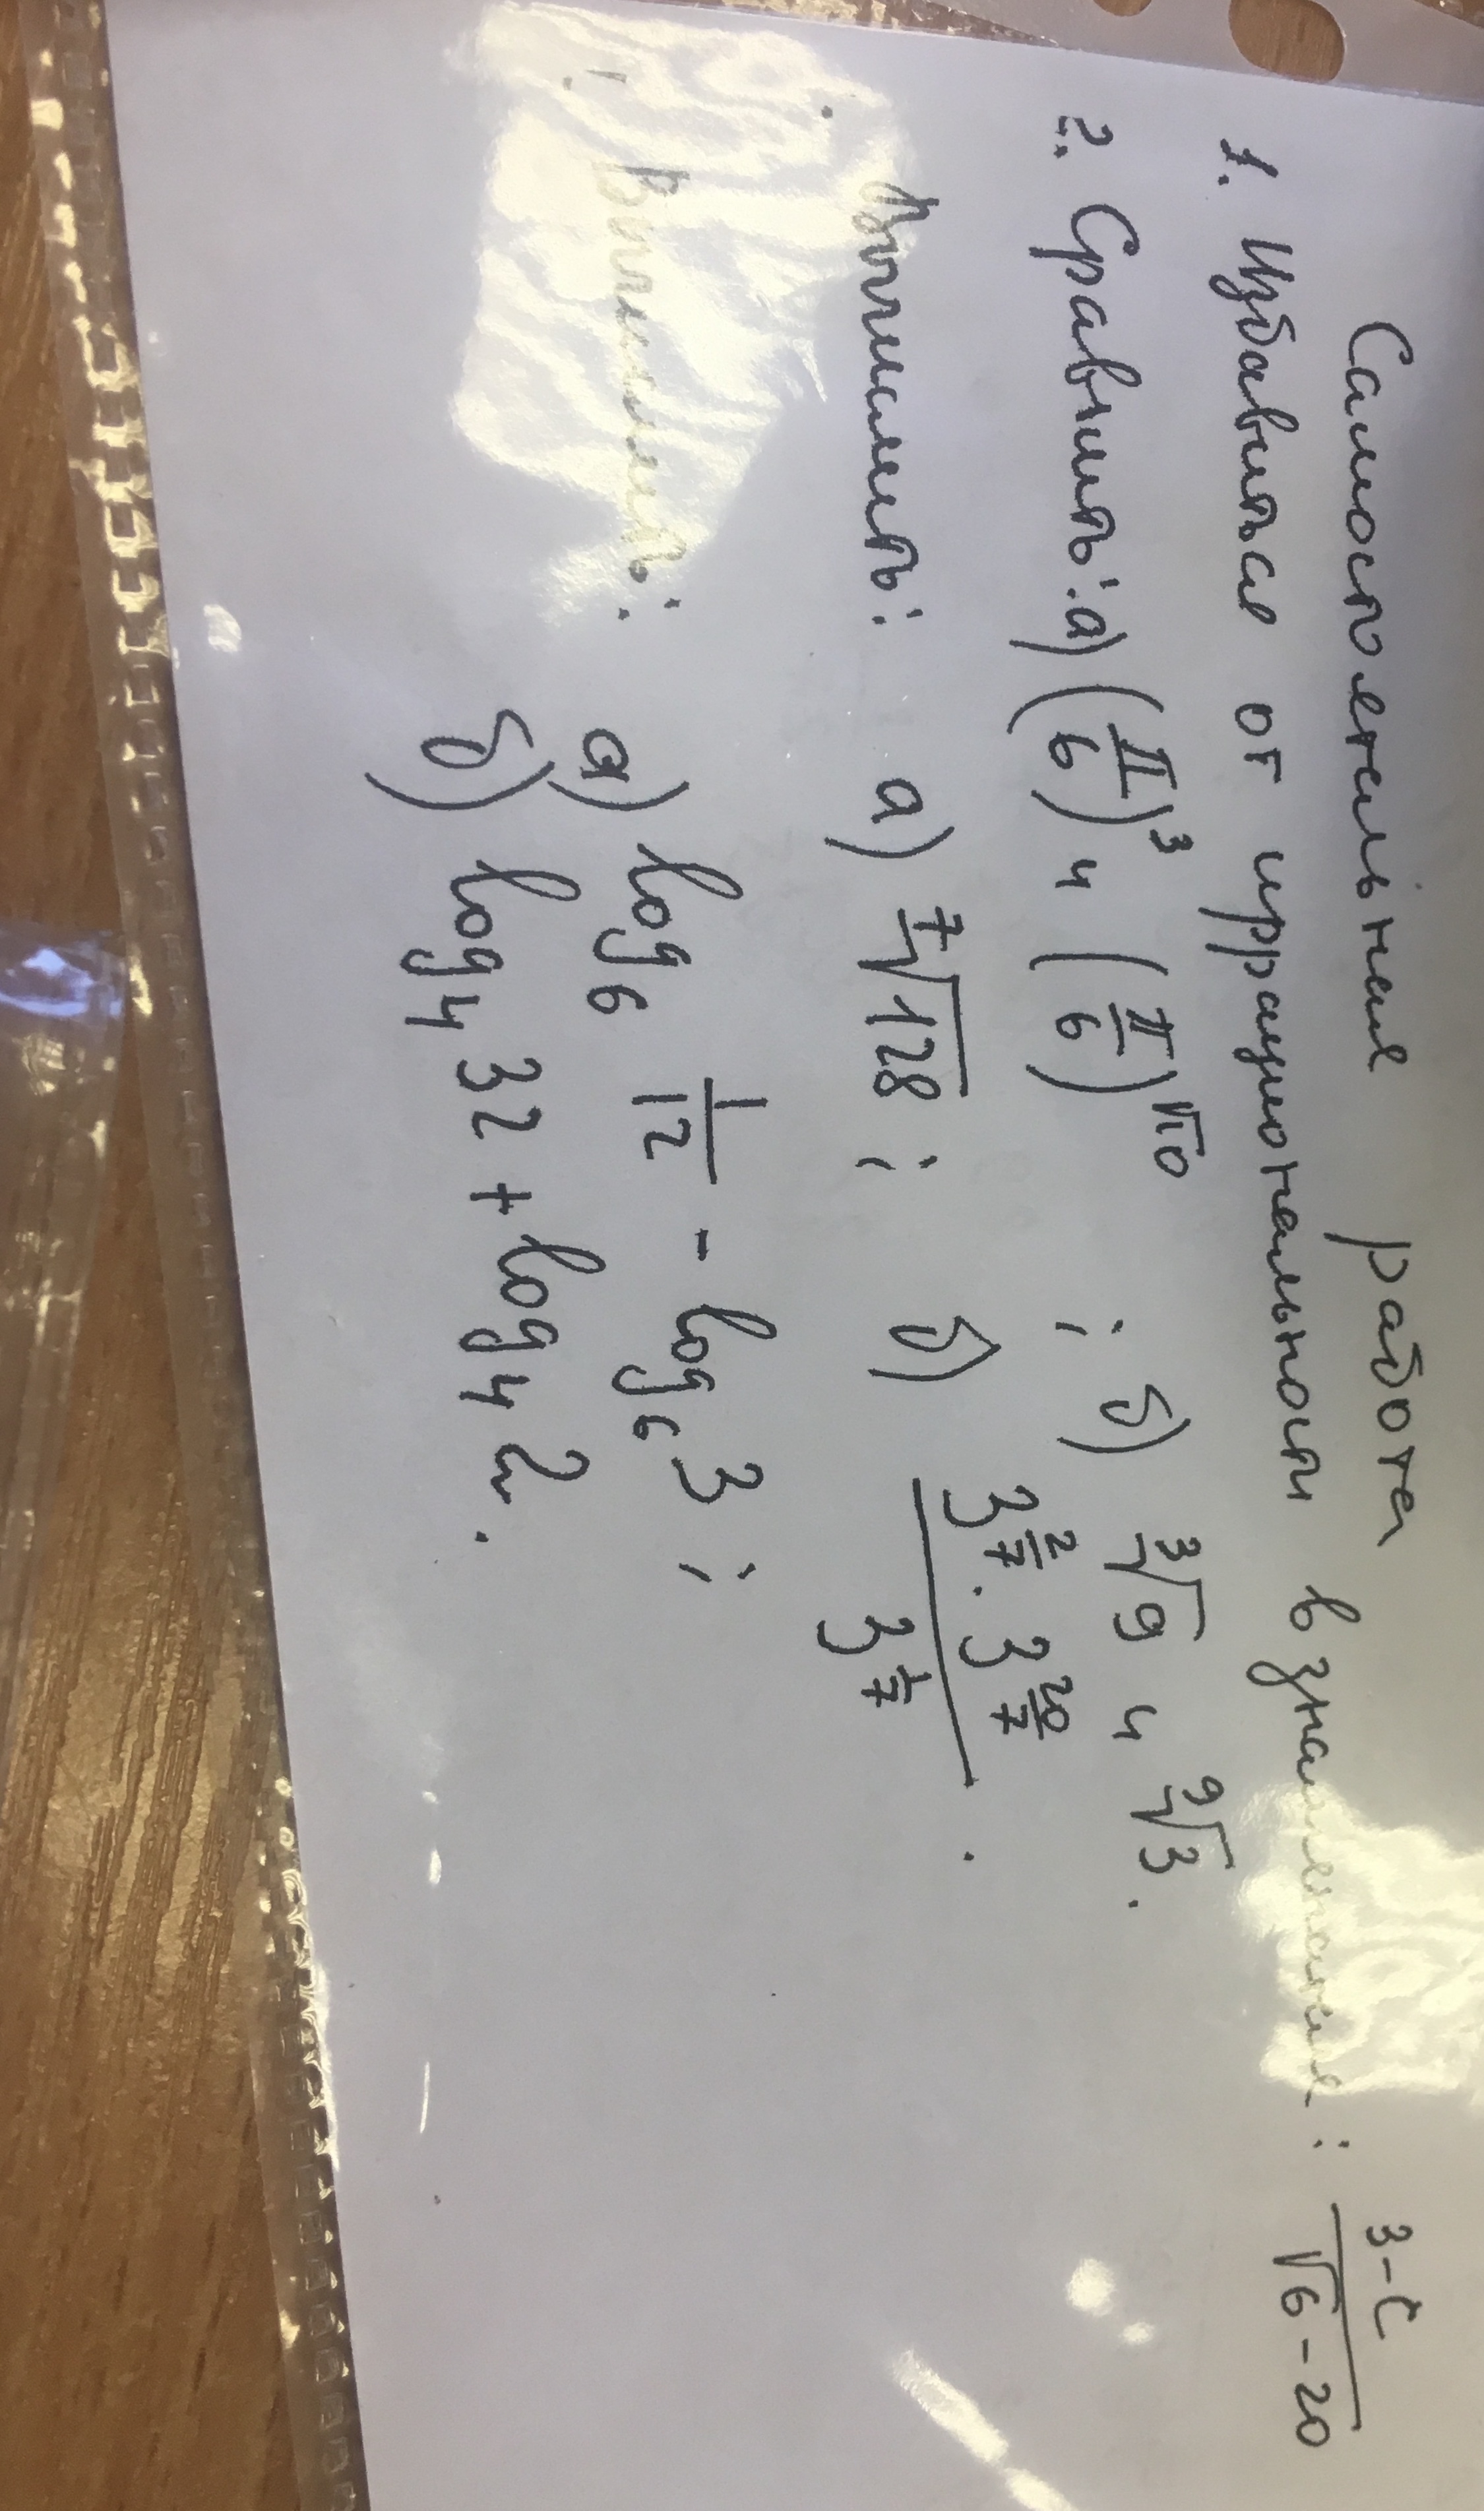 Самостоятельная работа
1. Избавиться от иррациональности в знаменателе: (3-c)/(√6-20)
2. Сравнить: а) (π/6)³ и (π/6)^√10 ; б) ∛9 и ⁹√3.
Вычислить: а) ⁷√128 ; б) (3^(2/7) · 3^(20/7))/(3^(1/7)) .
Вычислить: а) log₆ 1/12 - log₆ 3 ;
б) log₄ 32 + log₄ 2.